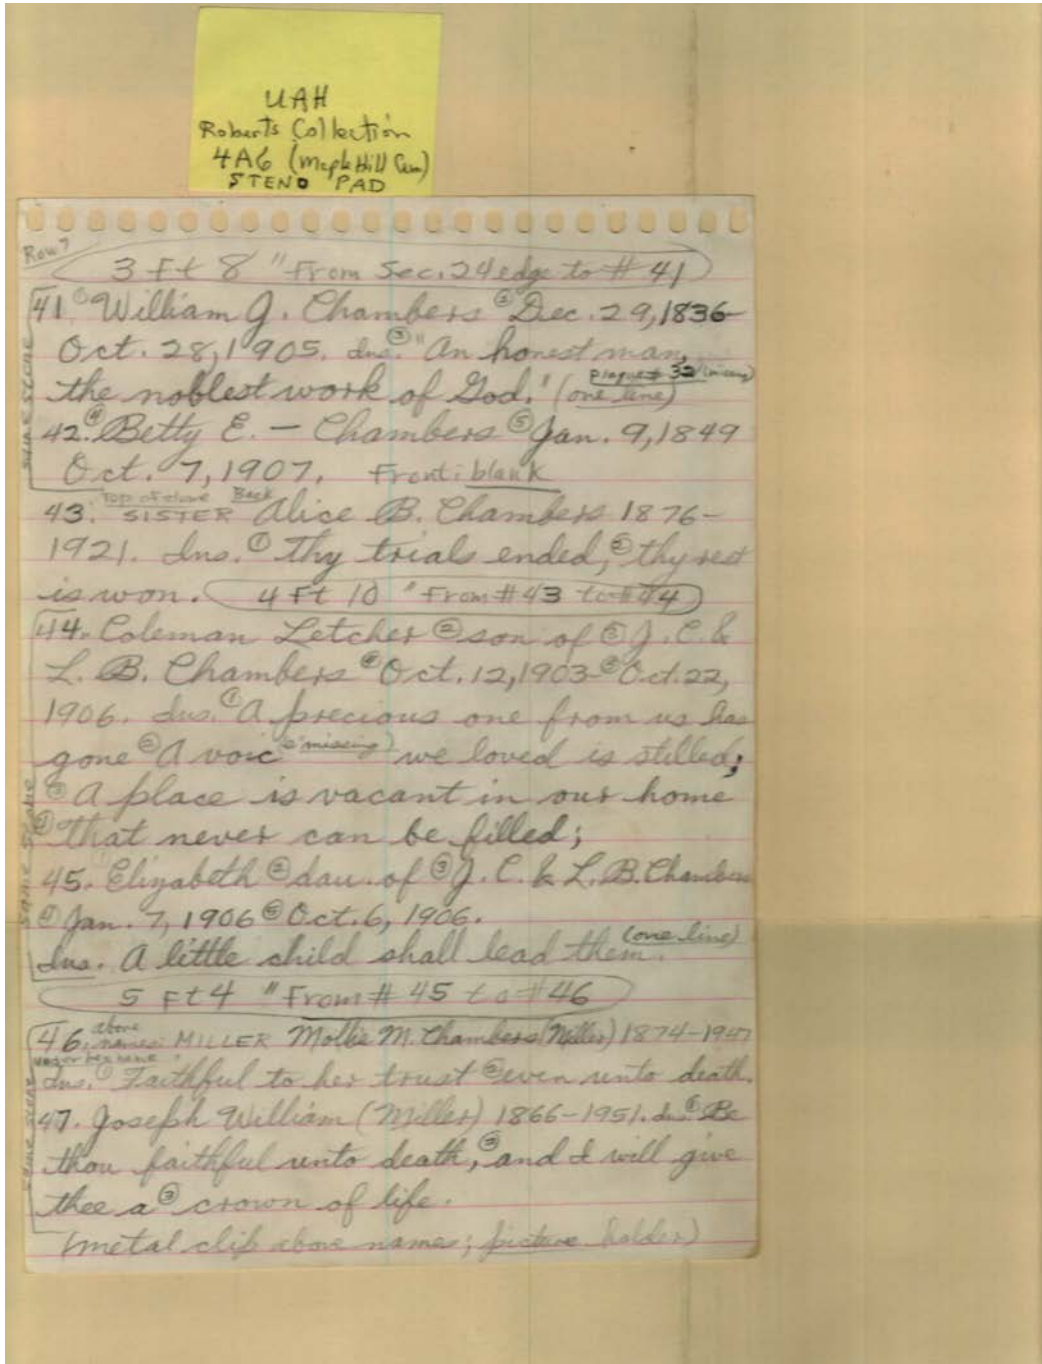 UAH
Roberts Collection
4A6 (Maple Hill Cem)
STENO PAD
Row 7
3 Ft 8 "From Sec. 24 edge to # 41
41 ① William J. Chambers ② Dec. 29, 1836-
Oct. 28, 1905. Ins. ③ "An honest man,
plaque # 32 (missing)
the noblest work of God." (one line)
42. ④ Betty E. - Chambers ⑤ Jan. 9, 1849
Oct. 7, 1907. Front: blank
Top of stone Back
43. SISTER Alice B. Chambers 1876-
1921. Ins. ① Thy trials ended, ② thy rest
is won. 4 Ft 10 "From # 43 to # 44
44. Coleman Letcher ② son of ③ J. C. &
L. B. Chambers ④ Oct. 12, 1903- ⑤ Oct. 22,
1906. Ins. ① A precious one from us has
gone ② A voic (e missing) we loved is stilled;
③ A place is vacant in our home
④ That never can be filled;
45. ① Elizabeth ② dau. of ③ J. C. & L. B. Chambers
④ Jan. 7, 1906 ⑤ Oct. 6, 1906.
Ins. A little child shall lead them. (one line)
5 Ft 4 "From # 45 to # 46
46. above names: MILLER Mollie M. Chambers (Miller) 1874-1947
under her name
Ins. ① Faithful to her trust ② even unto death.
47. Joseph William (Miller) 1866-1951. Ins. ① Be
thou faithful unto death, ② and I will give
thee a ③ crown of life.
(metal clip above names; picture holder)
same stone
same stone
same stone